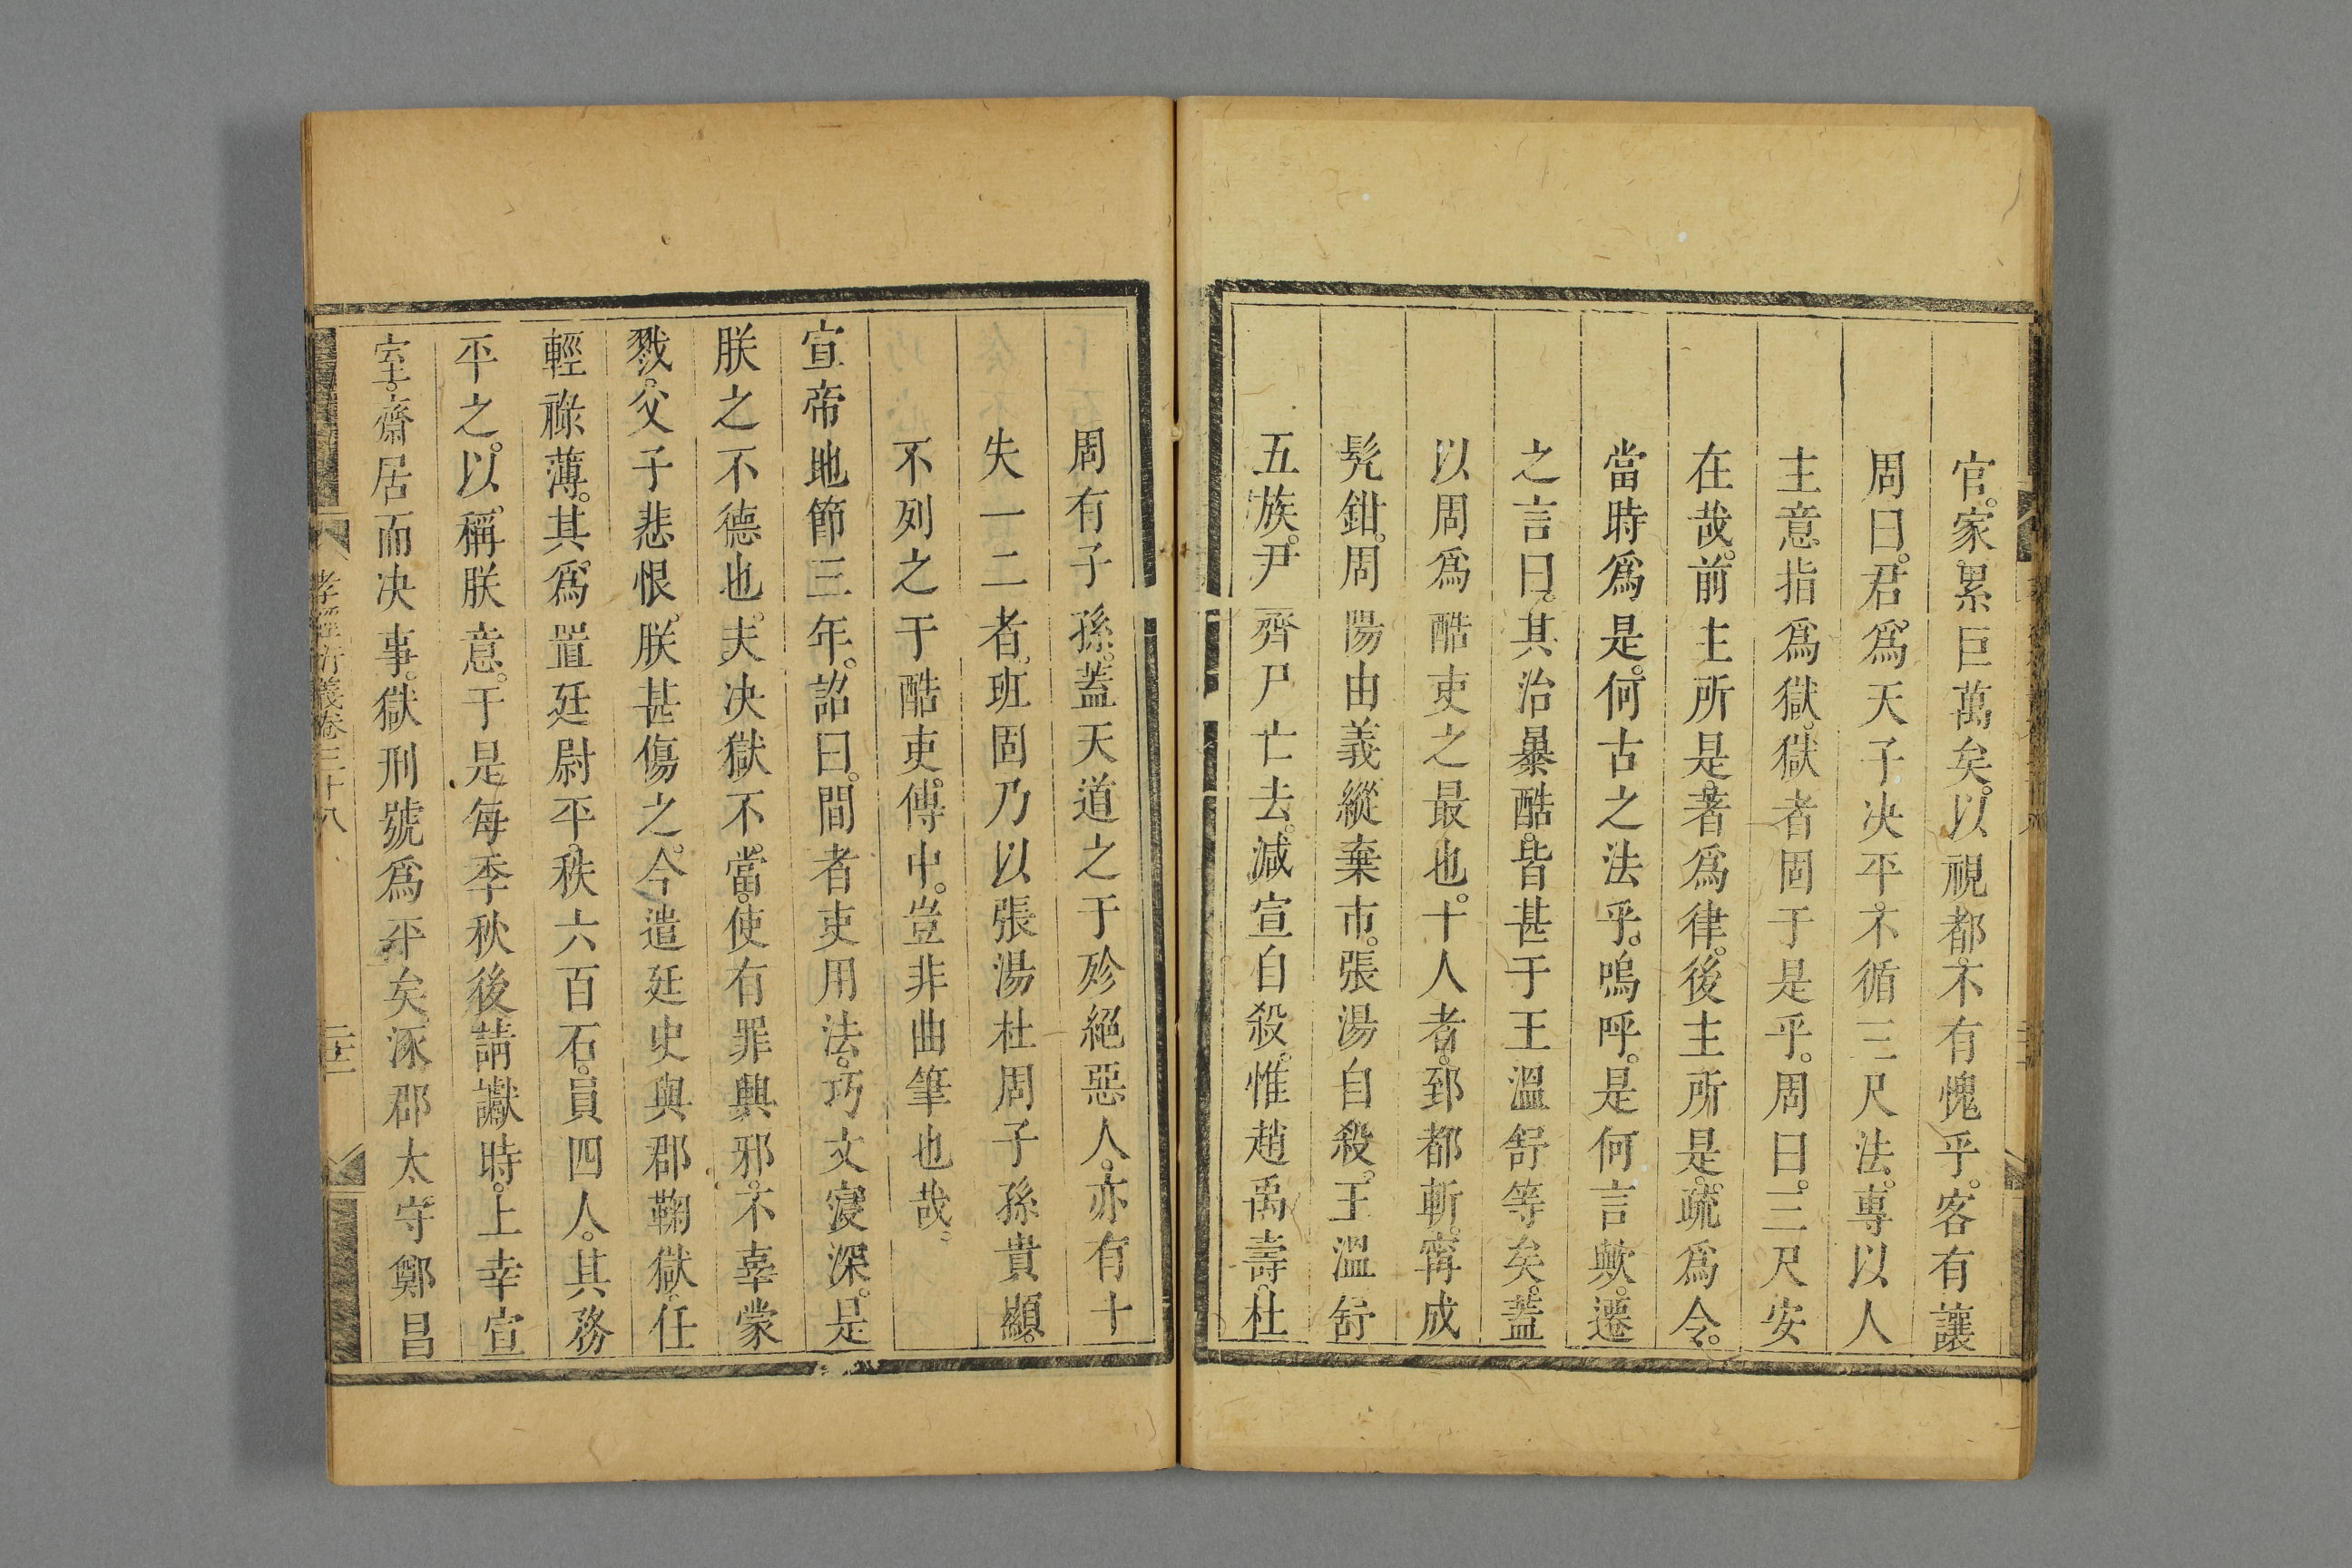 官。家累巨萬矣。以視都。不有愧乎。客有讓
周曰。君爲天子決平。不循三尺法。專以人
主意指爲獄。獄者固于是乎。周曰。三尺安
在哉。前主所是。著爲律。後主所是。疏爲令。
當時爲是。何古之法乎。嗚呼。是何言歟。遷
之言曰。其治暴酷。皆甚于王溫舒等矣。蓋
以周爲酷吏之最也。十人者。郅都斬。甯成
髡鉗。周陽由義縱棄市。張湯自殺。王溫舒
五族。尹齊尸亡去。減宣自殺。惟趙禹壽。杜
周有子孫。蓋天道之于殄絕惡人。亦有十
失一二者。班固乃以張湯杜周子孫貴顯。
不列之于酷吏。傳中。豈非曲筆也哉。
宣帝地節三年。詔曰。間者吏用法。巧文寖深。是
朕之不德也。夫决獄不當。使有罪興邪。不辜蒙
戮。父子悲恨。朕甚傷之。今遣廷史與郡鞠獄。任
輕祿薄。其爲置廷尉平。秩六百石。員四人。其務
平之。以稱朕意。于是每季秋後請讞時。上幸宣
室。齋居而决事。獄刑號爲平矣。涿郡太守鄭昌
孝經衍義卷三十八